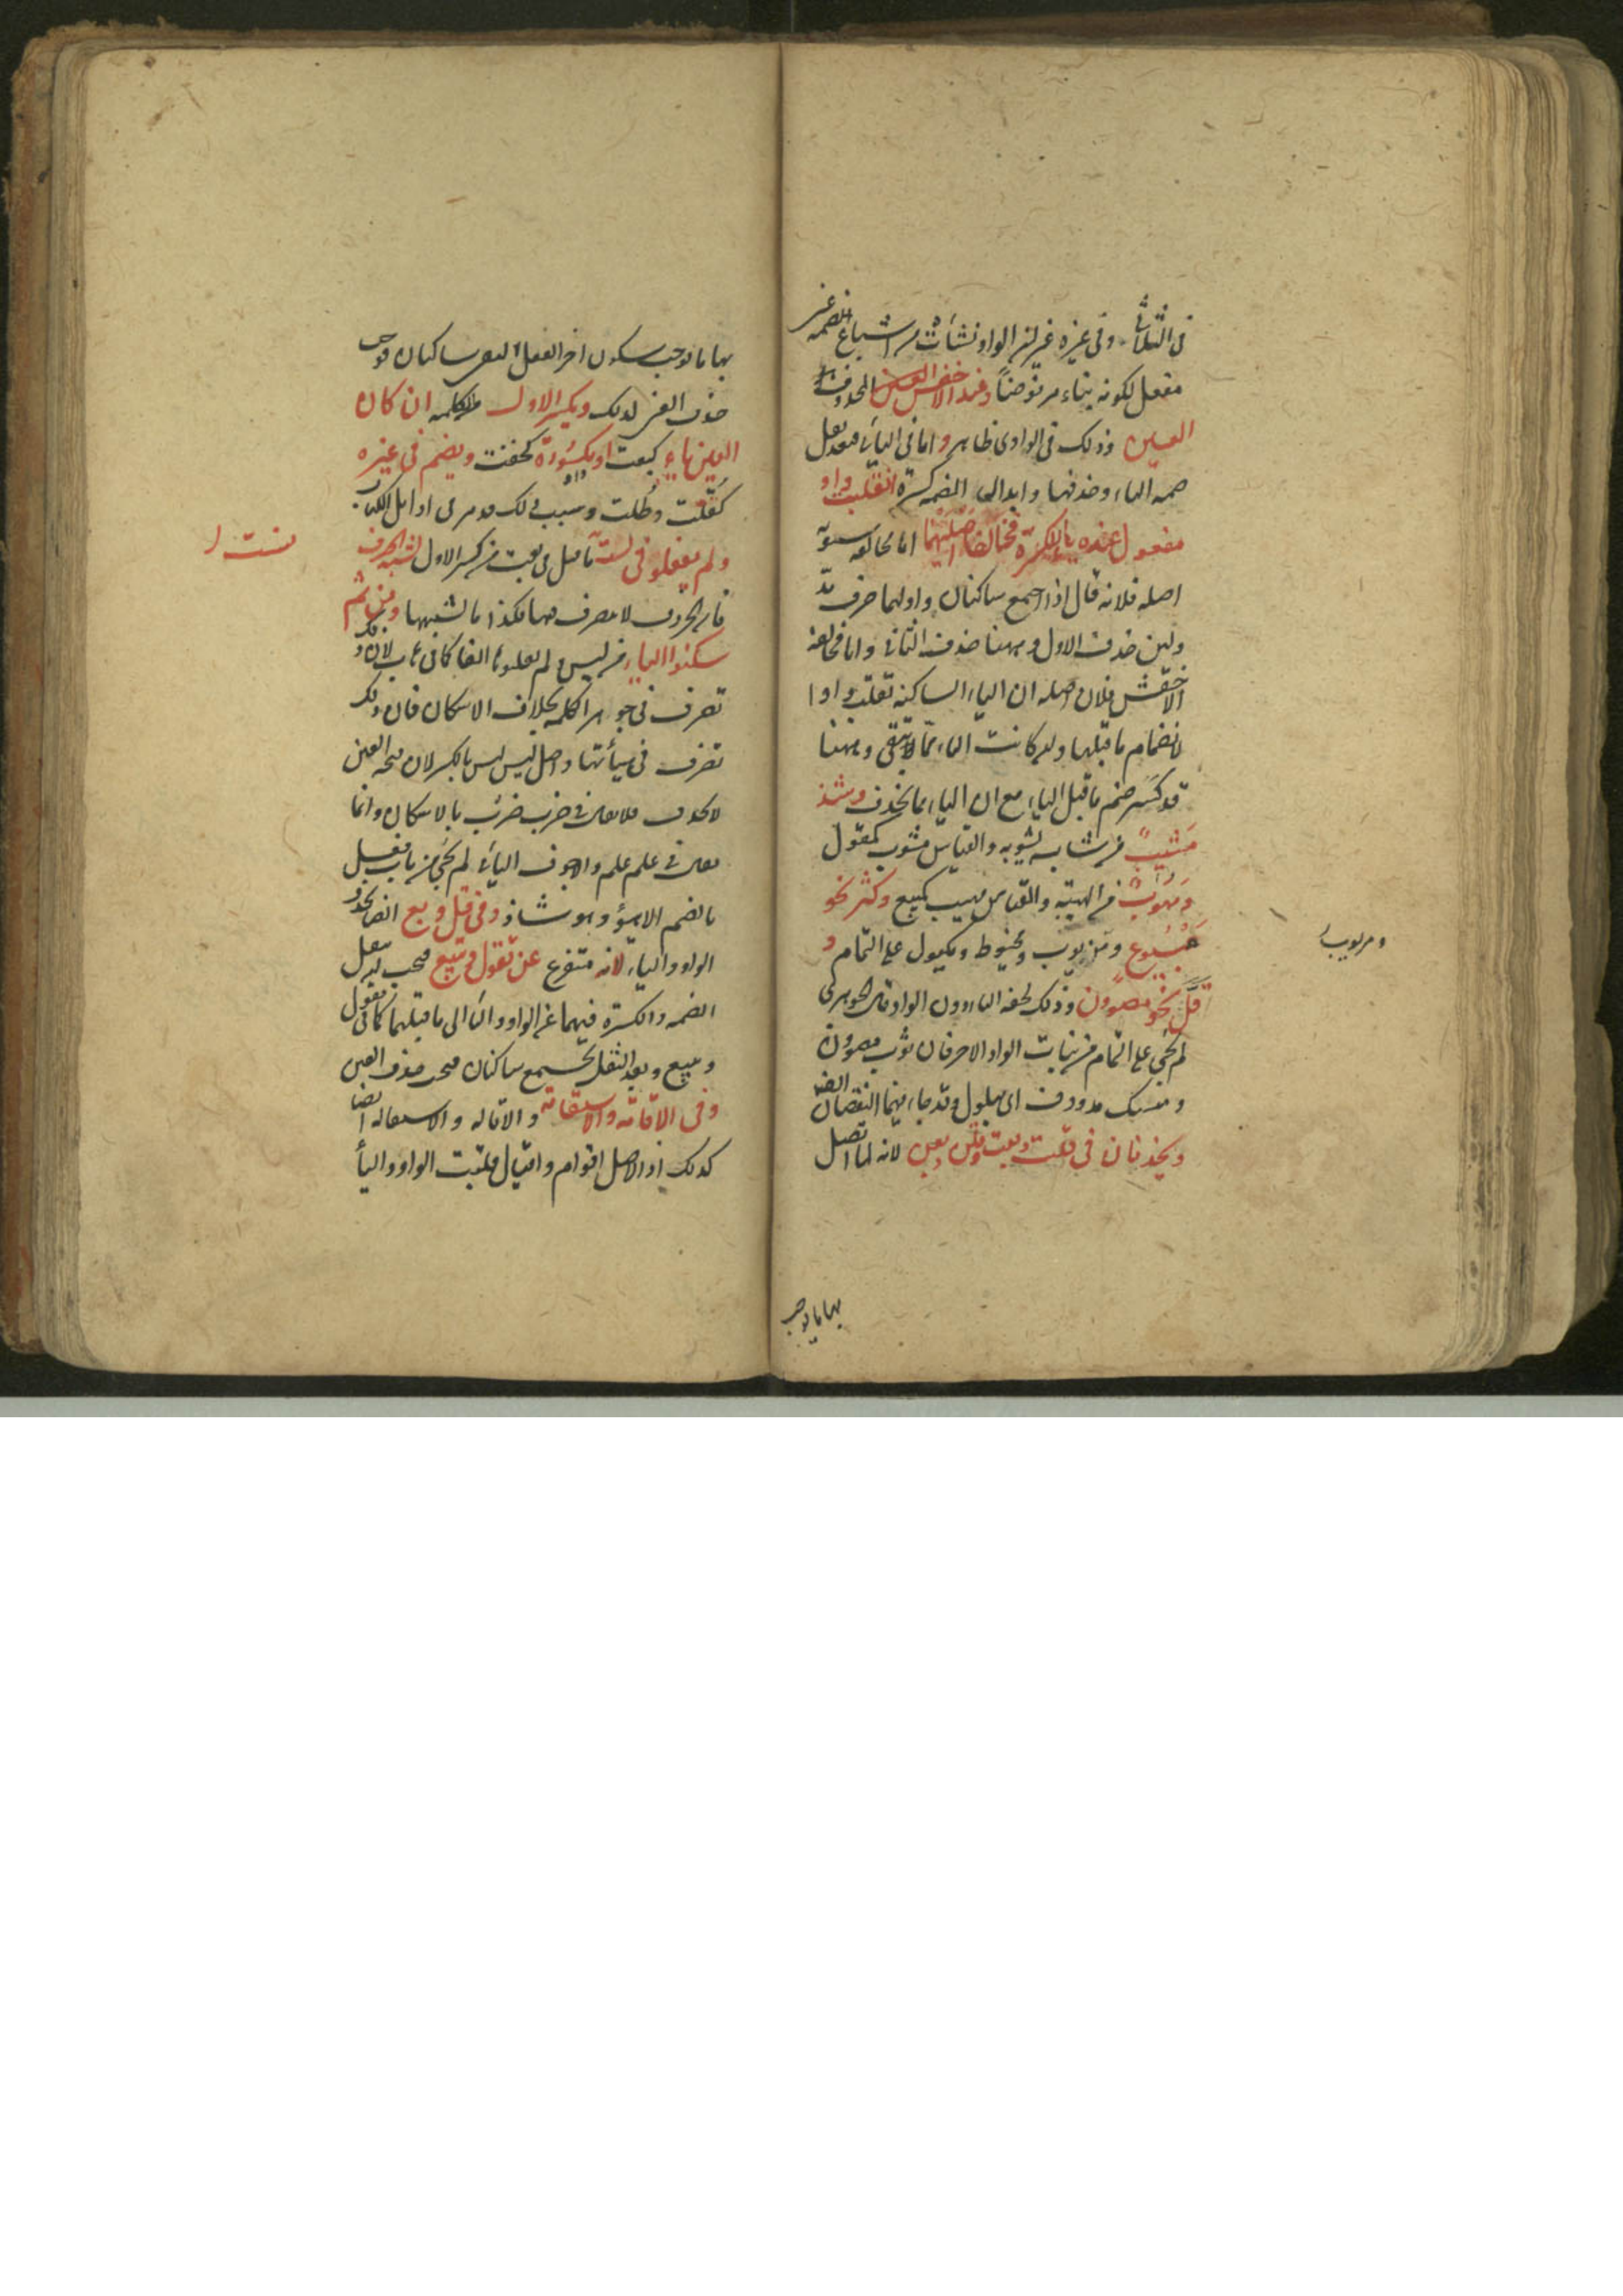 فى الثلاثى وفى غيره غير ان الواو نشأت من اشباع الضمه عين
مفعل لكونه بناء مرفوضاً وعند الاخفش العين المحذوف
العين وذلك فى الواوى ظاهر واما فى اليائى فبعد نقل
ضمه الياء وحذفها وابدال الضمه كسرة انقلبت واو
مفعول عنده ياء للكسرة فخالفا اصليهما اما مخالفه سيبويه
اصله فلانه قال اذا اجتمع ساكنان واولهما حرف مد
ولين حذف الاول وههنا حذف الثانى واما مخالفه
الاخفش فلان اصله ان الياء الساكنه تقلب واوا
لانضمام ما قبلها وان كانت الياء مما لا يبقى وههنا
قد كسر ضم ما قبل الياء مع ان الياء مما يحذف وشذ
مشيب من شاب يشوبه والقياس مشوب كمقول
ومهوب من الهيبة والقياس مهيب كمبيع وكثر نحو
مبيوع ومزيوب ومخيوط ومكيول على التمام و
قل نحو مصوون وذلك لخفه الياء دون الواو قال الجوهرى
لم يجئ على التمام من بنات الواو الا حرفان ثوب مصوون
ومسك مدووف اى مبلول وقد جاء فيهما النقصان ايضا
ويحذفان فى قلت وبعت وقلن وبعن لانه لما اتصل
ومزيوب
بها ما يوجب
بها ما يوجب سكون اخر الفعل التقى ساكنان فوجب
حذف العين لذلك ويكسر الاول من الكلمه ان كان
العين ياء كبعت او مكسورة كخفت ويضم فى غيره
كقلت وطلت وسبب ذلك قد مر فى اوايل الكتاب
ولم يفعلوه فى لست ما قيل فى بعت من كسر الاول لشبه الحرف
فان الحروف لا تصرف فيها فكذا ما اشبهها ومن ثم
سكنوا الياء من ليس ولم يقلبوها الفا كما فى هاب لان ذلك
تصرف فى جوهر الكلمه بخلاف الاسكان فان ذلك
تصرف فى هيأتها واصل ليس ليس بالكسر لان فتحه العين
لا تحذف فلا يقال فى ضرب ضرب بالاسكان وانما
يقال فى علم علم والاجوف اليائى لم يجئ من باب فعل
بالضم الا هيؤ وهو شاذ وفى قل وبع ايضا تحذف
الواو والياء لانه متفرع عن تقول وتبيع فيجب نقل
الضمه والكسرة فيهما عن الواو والياء الى ما قبلهما كما فى تقول
وتبيع وبعد النقل يجتمع ساكنان فيجب حذف العين
وفى الاقامة والاستقامة والاقاله والاستقاله ايضا
كذلك اذ الاصل اقوام واقيال قلبت الواو والياء